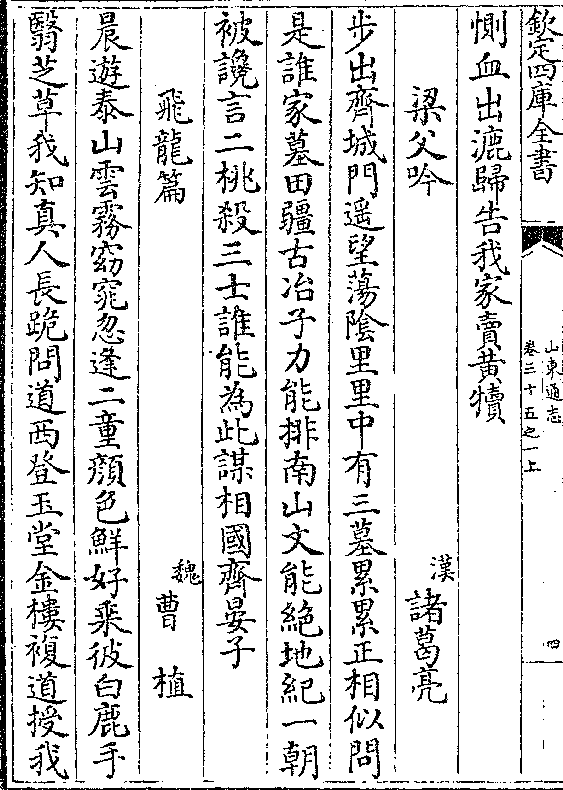 欽定四庫全書
山東通志
卷三十五之一上
四
惻血出漉歸告我家賣黄犢
梁父吟
漢諸葛亮
步出齊城門遥望蕩隂里里中有三墓累累正相似問
是誰家墓田疆古冶子力能排南山文能絶地紀一朝
被讒言二桃殺三士誰能為此謀相國齊晏子
飛龍篇
魏曹植
晨遊泰山雲霧窈窕忽逢二童顔色鮮好乗彼白鹿手
翳芝草我知真人長跪問道西登玉堂金樓複道授我